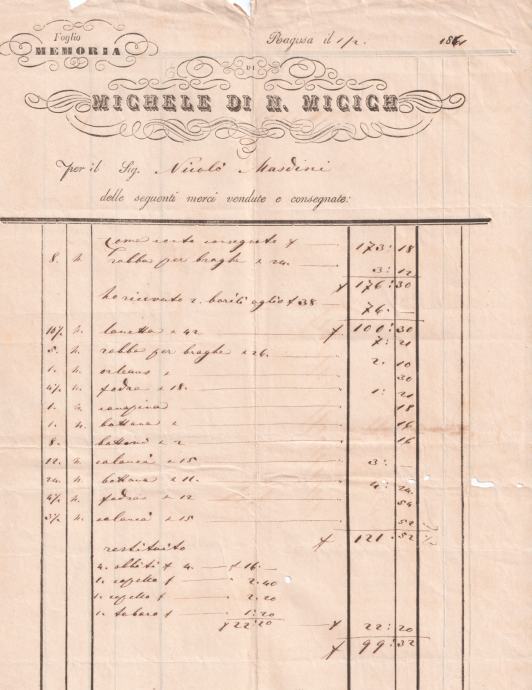 Foglio
MEMORIA
Ragusa il 1/2. 1861
DI
MICHELE DI N. MICICH
per il Sig. Nicolò Masdini
delle seguenti merci vendute e consegnate:
Come conto consegnato f 173:18
8. n. robba per braghe a 24. 3:12
f 176:30
ho ricevuto 2. barili oglio f 38 76.
10½ n. lanetta a 42 f. 100:30
7:21
5. n. robba per braghe a 26. 2.10
1. n. orleans 30
4½ fodra a 18. 1:21
1. 18
1. n. bottana 16
8. bottoni a 2 16
12. n. a 15 3:
24. n. bottana a 11. 4:24
4½ n. fodra a 12 54
3½ a 15 52
f 121:52
restituito
4. f 4. f 16.
1. f 2.40
1. f 2.20
1. f 1:20
f 22:20 f 22:20
f 99:32